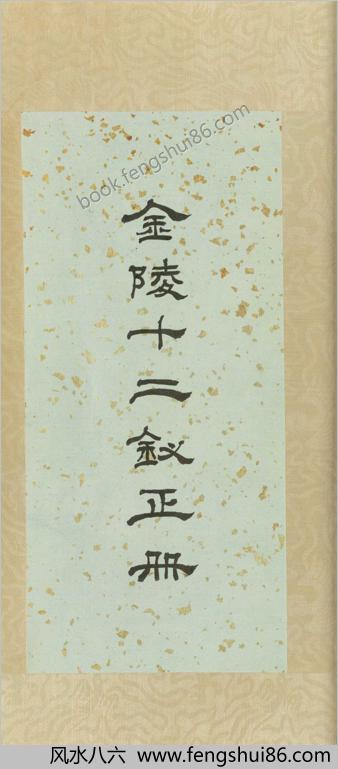 book.fengshui86.com
金陵十二釵正册
风水八六 www.fengshui86.com